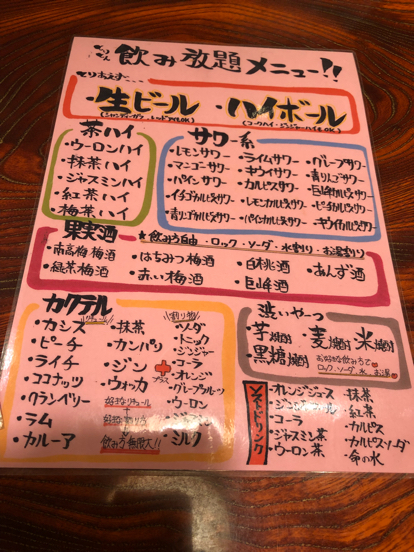 飲み放題メニュー!!
とりあえず…
・生ビール ・ハイボール
茶ハイ
・ウーロンハイ
・抹茶ハイ
・ジャスミンハイ
・紅茶ハイ
・梅茶ハイ
サワー系
・レモンサワー ・ライムサワー ・グレープサワー
・マンゴーサワー ・キウイサワー ・青りんごサワー
・パインサワー ・カルピスサワー ・巨峰カルピスサワー
・イチゴカルピスサワー ・レモンカルピスサワー ・ピーチカルピスサワー
・青りんごカルピスサワー ・パインカルピスサワー ・キウイカルピスサワー
果実酒 ★飲み方自由・ロック・ソーダ・水割り・お湯割り
・南高梅梅酒 ・はちみつ梅酒 ・白桃酒 ・あんず酒
・緑茶梅酒 ・赤い梅酒 ・巨峰酒
カクテル
・カシス
・ピーチ
・ライチ
・ココナッツ
・クランベリー
・ラム
・カルーア
・抹茶
・カンパリ
・ジン
・ウォッカ
プラス
割り物
・ソダ
・トニック
・ジンジャー
・コーラ
・オレンジ
・グレープフルーツ
・ウーロン
・ミルク
飲み方無限大!!
渋いやーつ
・芋焼酎 麦焼酎 米焼酎
・黒糖焼酎 お好きな飲み方で
ロック、ソーダ、水、お湯
ソフトドリンク
・オレンジジュース
・コーラ
・ジャスミン茶
・ウーロン茶
・抹茶
・紅茶
・カルピス
・カルピスソーダ
・命の水